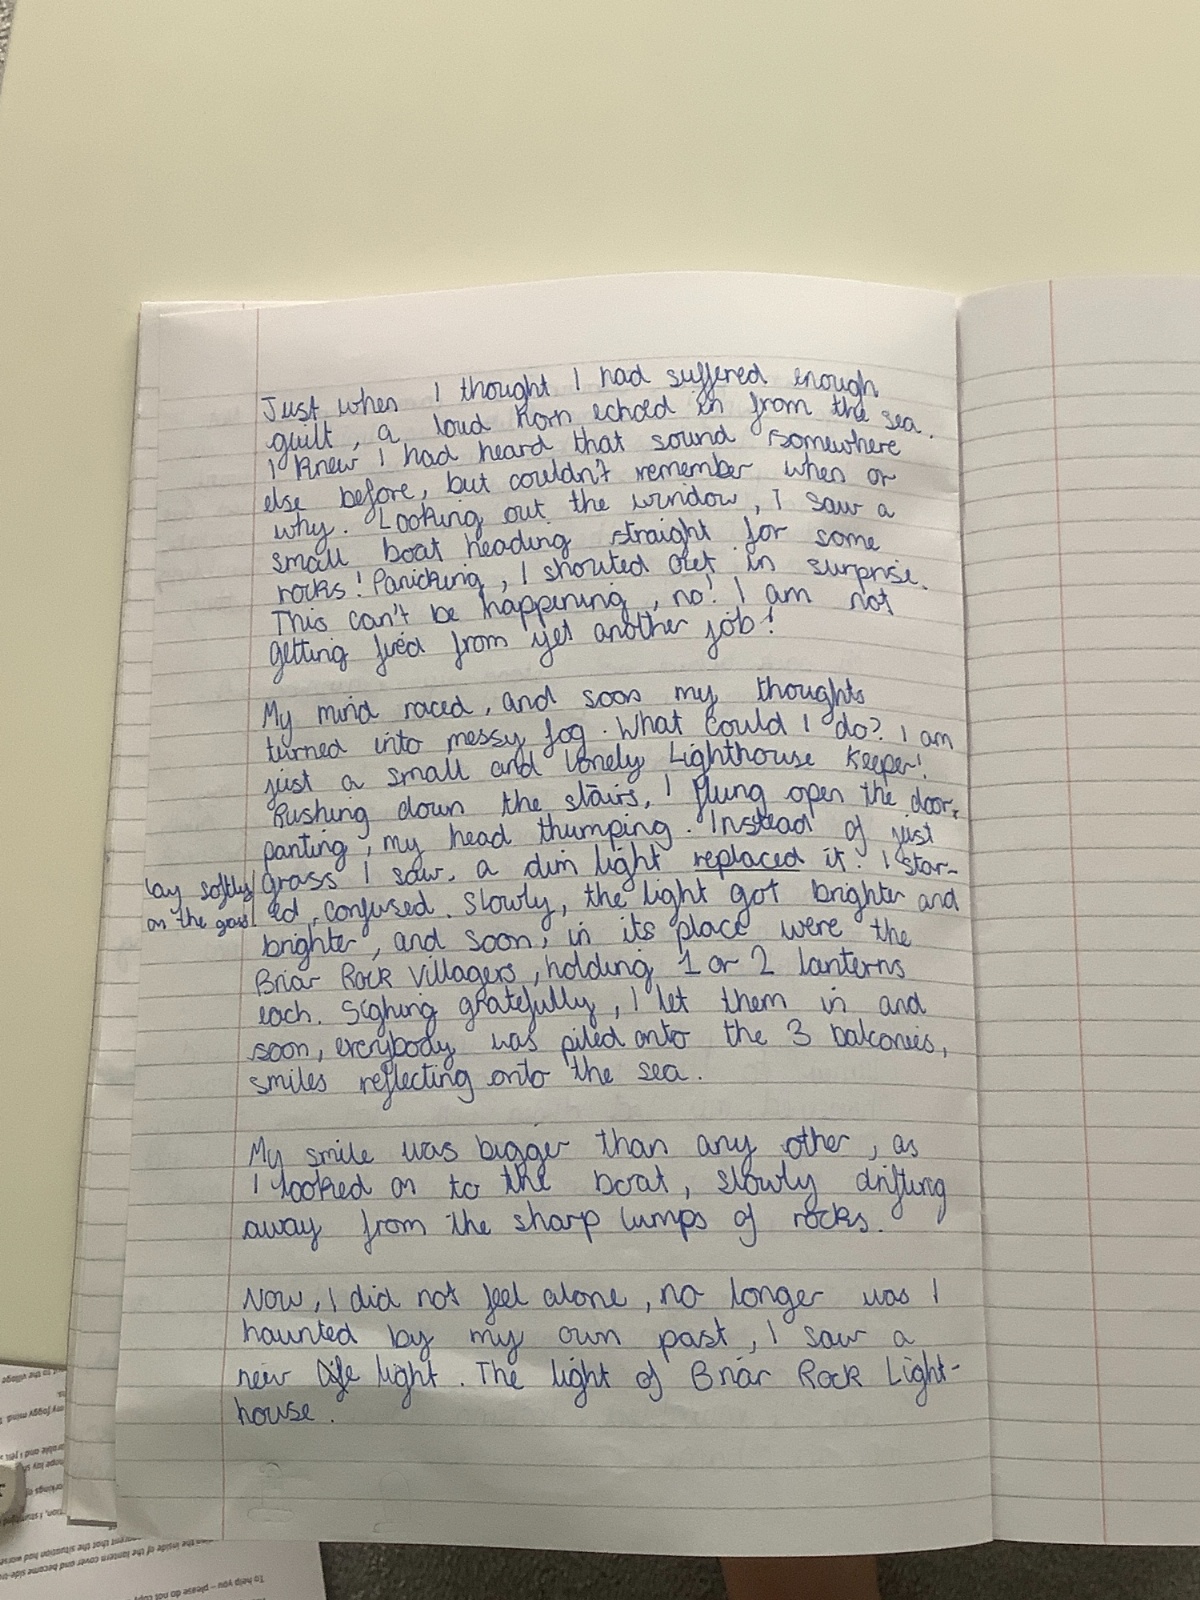 Just when I thought I had suffered enough
guilt, a loud horn echoed in from the sea.
I knew I had heard that sound somewhere
else before, but couldn't remember when or
why. Looking out the window, I saw a
small boat heading straight for some
rocks! Panicking, I shouted out in surprise.
This can't be happening, no! I am not
getting fired from yet another job!
My mind raced, and soon my thoughts
turned into messy fog. What could I do? I am
just a small and lonely Lighthouse Keeper!
Rushing down the stairs, I flung open the door,
panting, my head thumping. Instead of just
grass I saw, a dim light replaced it. I star-
lay softly
on the grass
ed, confused. Slowly, the light got brighter and
brighter, and soon, in its place were the
Briar Rock Villagers, holding 1 or 2 lanterns
each. Sighing gratefully, I let them in and
soon, everybody was piled onto the 3 balconies,
smiles reflecting onto the sea.
My smile was bigger than any other, as
I looked on to the boat, slowly drifting
away from the sharp lumps of rocks.
Now, I did not feel alone, no longer was I
haunted by my own past, I saw a
new life light. The light of Briar Rock Light-
house.
To help you – please do not
the inside of the lantern cover and become
that the situation had
my foggy mind
to the village